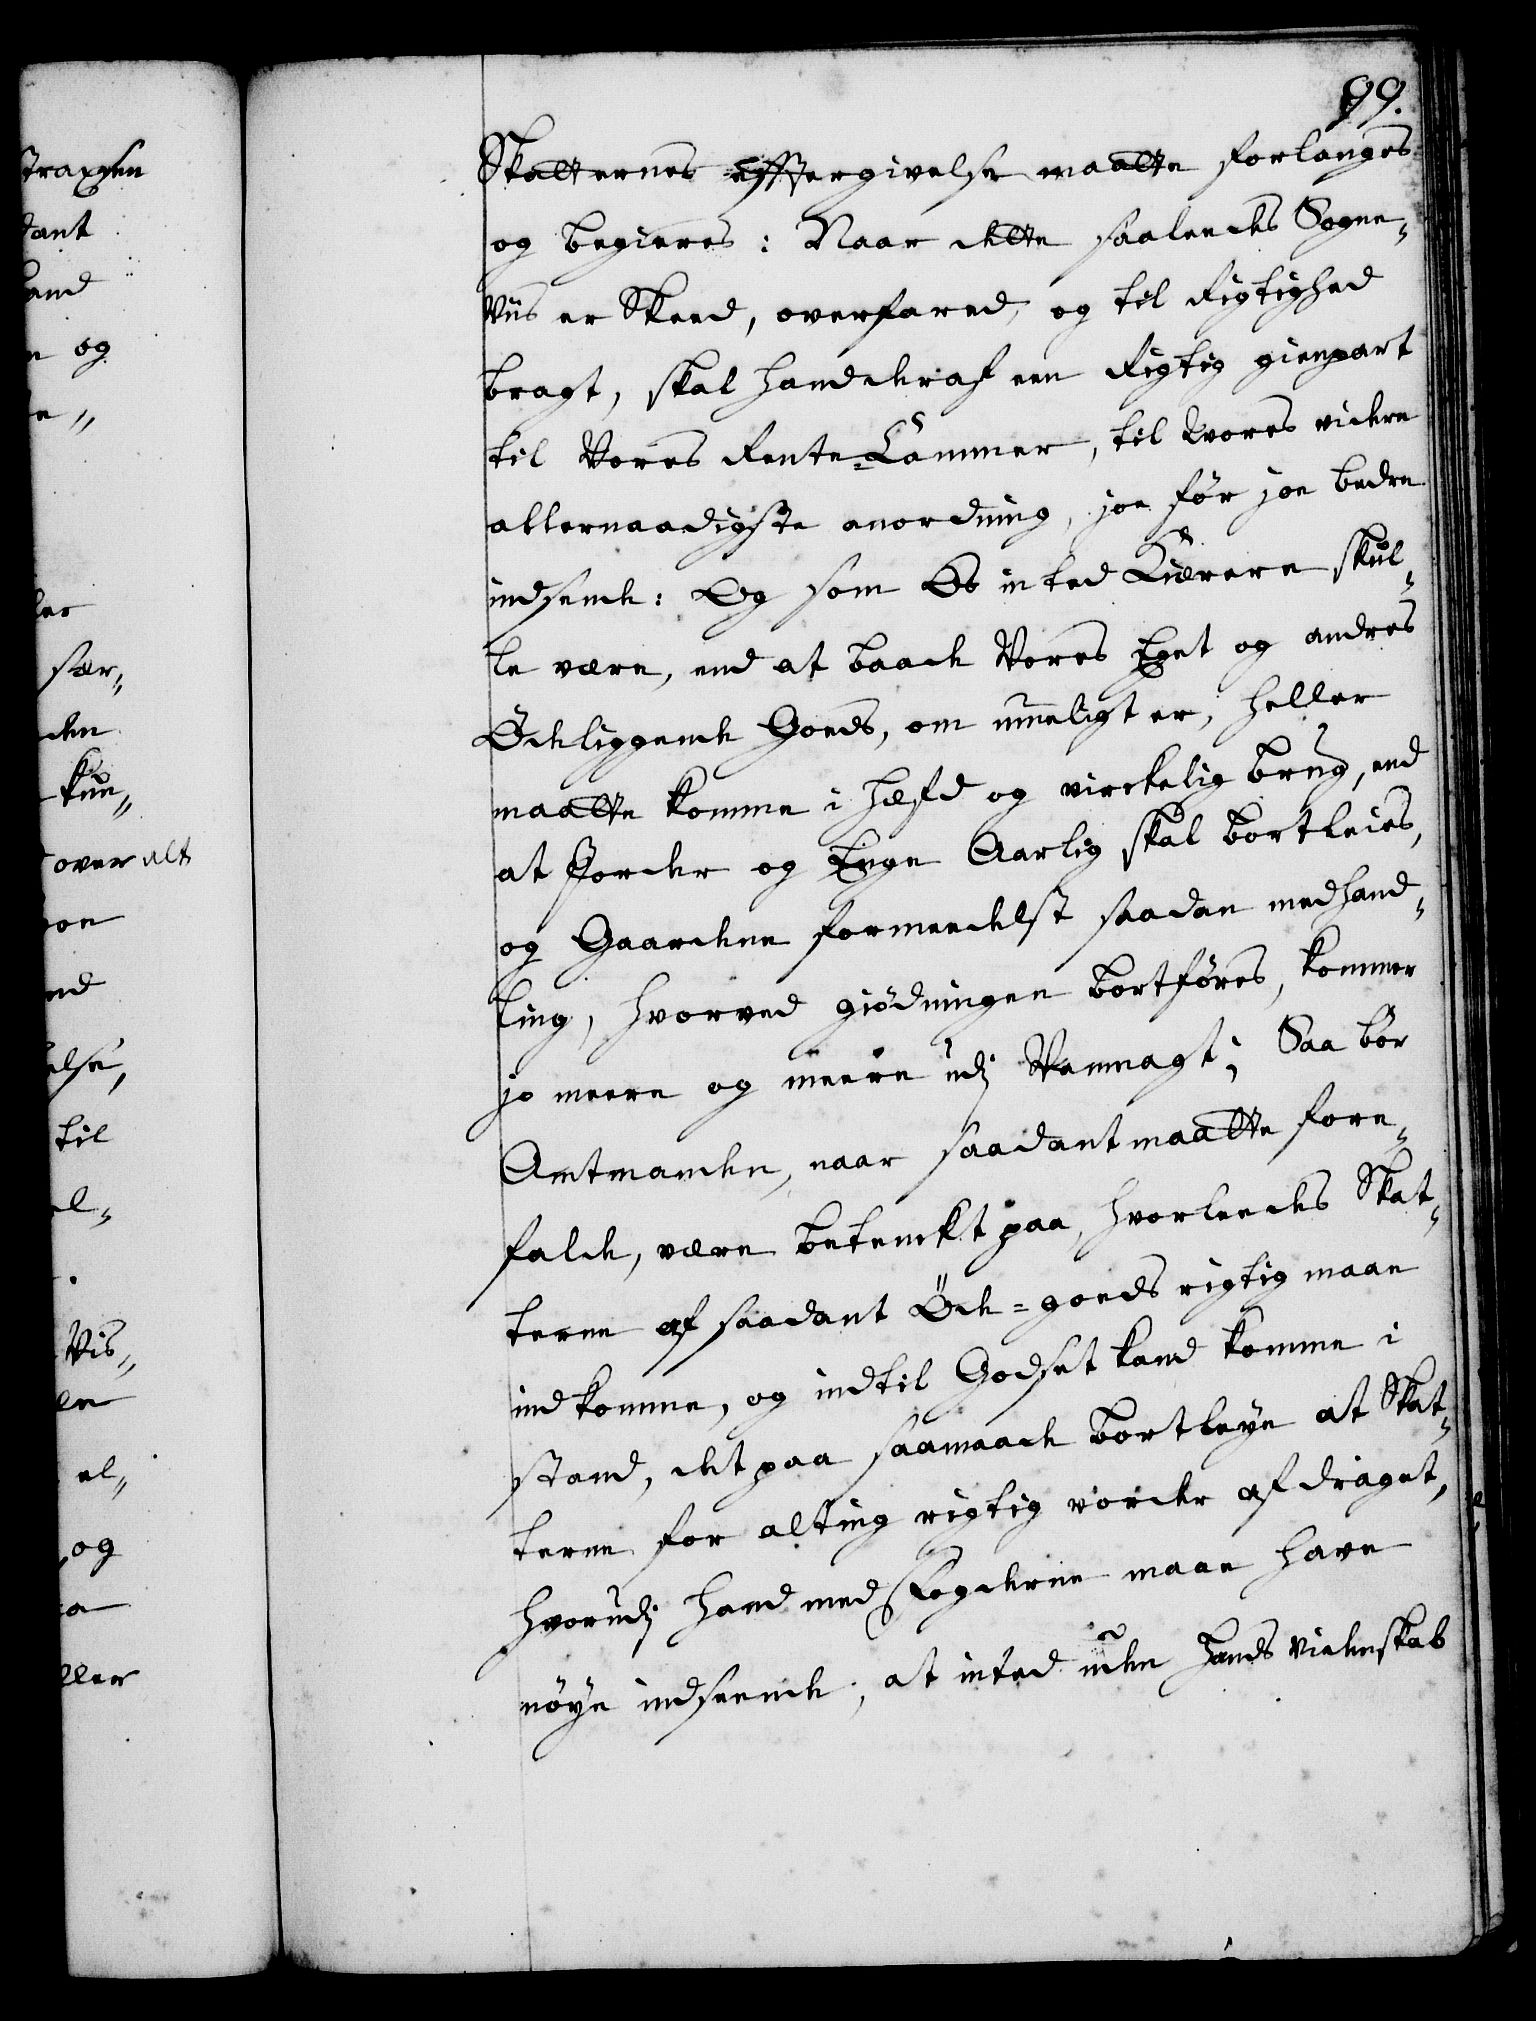 99.
Skatternes efftergivelse maatte forlanges
og begieres: Naar dette saaleedes Sogne„
Viis er Skeed, overfared, og til Rigtighed
bragt, skal hand deraf een Rigtig gienpart
til Vores Rente-Cammer, til Vores videre
allernaadigste anordning, joe før joe bedre
indsende: Og som Os inted Kiærere skul„
le være, end at baade Vores Eget og andres
Ödeliggende Goeds, om mueligt er, heller
maatte komme i hæfd og virckelig brug, end
at Jorder og Enge Aarlig skal bortleies,
og Gaardene formeedelst saadan medhand„
ling, hvorved giødningen bortføres, kommer
jo meere og meere udj Vanmagt; Saa bör
Amtmanden, naar saadant maatte fore„
falde, være betenckt paa, hvorleedes Skat„
terne af saadant Öde-goeds rigtig maae
indkomme, og indtil Godset kand komme i
stand, det paa saamaade bortleye at Skat„
terne for alting rigtig vorder afdraget,
hvorudj hand med Fogderne maae have
nöye indseende, at inted uden hands videnskab
traxsen
dant
og
ler
sær„
den
kun„
over alt
else,
til
Vis„
el„
og
ller